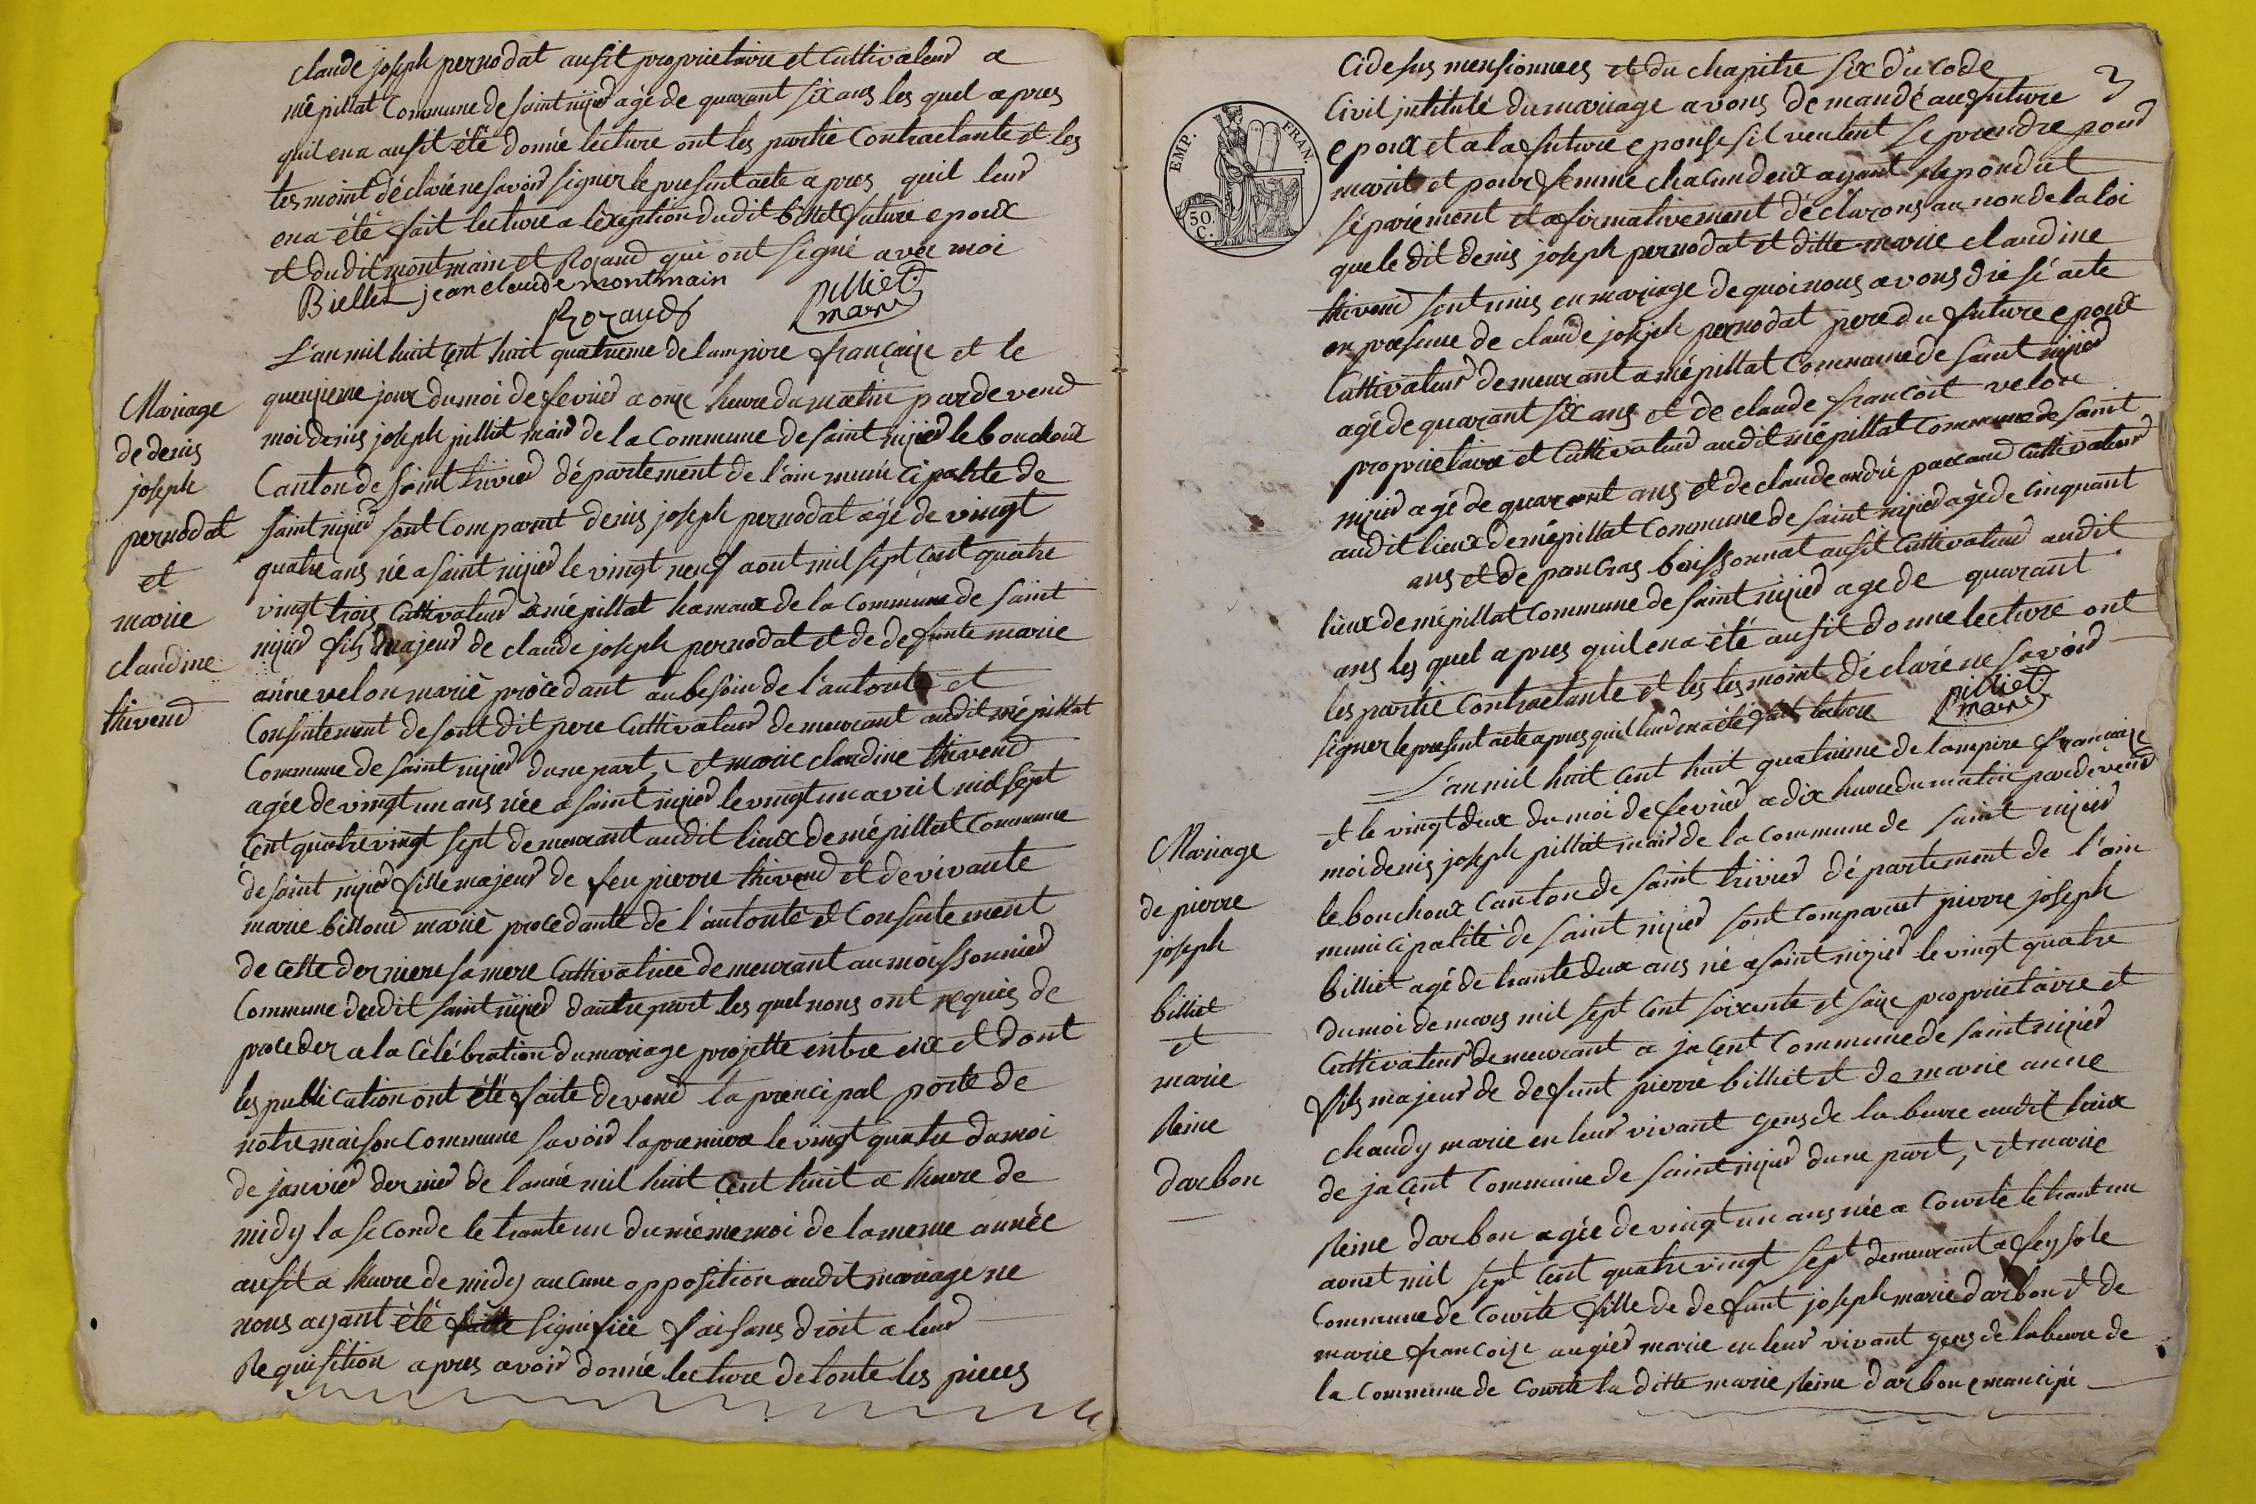 claude joseph pernodat ausit proprietaire et Cultivateur a
mépillat Commune de saint nizier agé de quarant six ans les quel apres
quil en a ausit été donné lecture ont les partie Contractante et les
tesmoint déclaré ne savoir signer le present acte apres quil leur
en a été fait lecture a lexeption dudit billet future epoux
et dudit montmain et Rozand qui ont signé avec moi
Billet jean claude montmain
Rozand pilliet
mair
L'an mil huit cent huit quatrieme de lampire françaize et le
quenzieme jour du moi de fevrier a onze heure du matin par devend
moi denis joseph pilliet mair de la Commune de saint nizier le bouchoux
Canton de saint trivier département de l'ain municipalite de
saint nizier sont Comparut denis joseph pernodat agé de vingt
quatre ans né a saint nizier le vingt neuf aout mil sept cent quatre
vingt trois Cultivateur a mépillat hamaux de la Commune de saint
nizier fils majeur de claude joseph pernodat et de defunte marie
anne velon marié procedant au besoin de l'autorité et
Consintement de sont dit pere Cultivateur demeurant audit mépillat
Commune de saint nizier dune part, et marie claudine thivend
agée de vingt un ans née a saint nizier le vingt un avril mil sept
cent quatre vingt sept demeurant audit lieux de mépillat Commune
de saint nizier fille majeur de feu pierre thivend et de vivante
marie billoud marié procedante de l'autorité et Consintement
de cette derniere sa mere Cultivatrice demeurant au moissonnier
Commune dudit saint nizier dautre part les quel nous ont requis de
proceder a la célébration du mariage projette entre eux et dont
les publication ont été faite devend la prencipal porte de
notre maison Commune savoir la premiere le vingt quatre du moi
de janvier dernier de lanné mil huit cent huit a heure de
midy la seconde le trante un du méme moi de la meme année
ausit a heure de midy aucune opposition audit mariage ne
nous ayant été signifiée faisans droit a leur
Requisition apres avoir donné lecture de toute les pieces
Mariage
de denis
joseph
pernodat
et
marie
claudine
thivend
3
EMP. FRAN.
50
C.
Cidesus mensionnees et du chapitre six du Code
Civil intitulé du mariage avons demandé au future
epoux et a la future epouse sil veulent se prendre pour
marit et pour femme chacun deux ayant repondut
séparément et afirmativement déclarons au non de la loi
que le dit denis joseph pernodat et ditte marie claudine
thivend sont unis en mariage de quoi nous avons dressé acte
en presence de claude joseph pernodat pere du future epoux
Cultivateur demeurant a mépillat Commune de saint nizier
agé de quarant six ans et de claude françoit velon
proprietaire et Cultivateur audit mépillat Commune de saint
nizier agé de quarant ans et de claude andré paccaud Cultivateur
audit lieux de mépillat Commune de saint nizier agé de cinquant
ans et de pancras boissonnat ausit Cultivateur audit
lieux de mépillat Commune de saint nizier age de quarant
ans les quel apres quil en a été ausit donne lecture ont
les partie Contractante et les tesmoint déclaré ne savoir
signer le present acte apres quil leur en a été fait lecture
pilliet
mair
L'an mil huit cent huit quatrieme de lampire française
et le vingt deux du moi de fevrier a dix heure du matin par devend
moi denis joseph pilliat mair de la Commune de saint nizier
le bouchoux Canton de saint trivier département de l'ain
municipalité de saint nizier sont Comparut pierre joseph
billiet agé de trante deux ans né a saint nizier le vingt quatre
du moi de mars mil sept cent soixante et saize proprietaire et
Cultivateur demeurant a jacent Commune de saint nizier
fils majeur de defunt pierre billiet et de marie anne
chaudy marie en leur vivant gens de labeure audit lieux
de jacent Commune de saint nizier dune part, et marie
Reine darbon agée de vingt un ans née a Courte le trant un
aout mil sept cent quatre vingt sept demeurant a feysole
Commune de Courte fille de defunt joseph marie darbon et de
marie francoize augier marie en leur vivant gens de labeure de
la Commune de Courte la ditte marie Reine darbon emancipé
Mariage
de pierre
joseph
billiet
et
marie
Reine
darbon